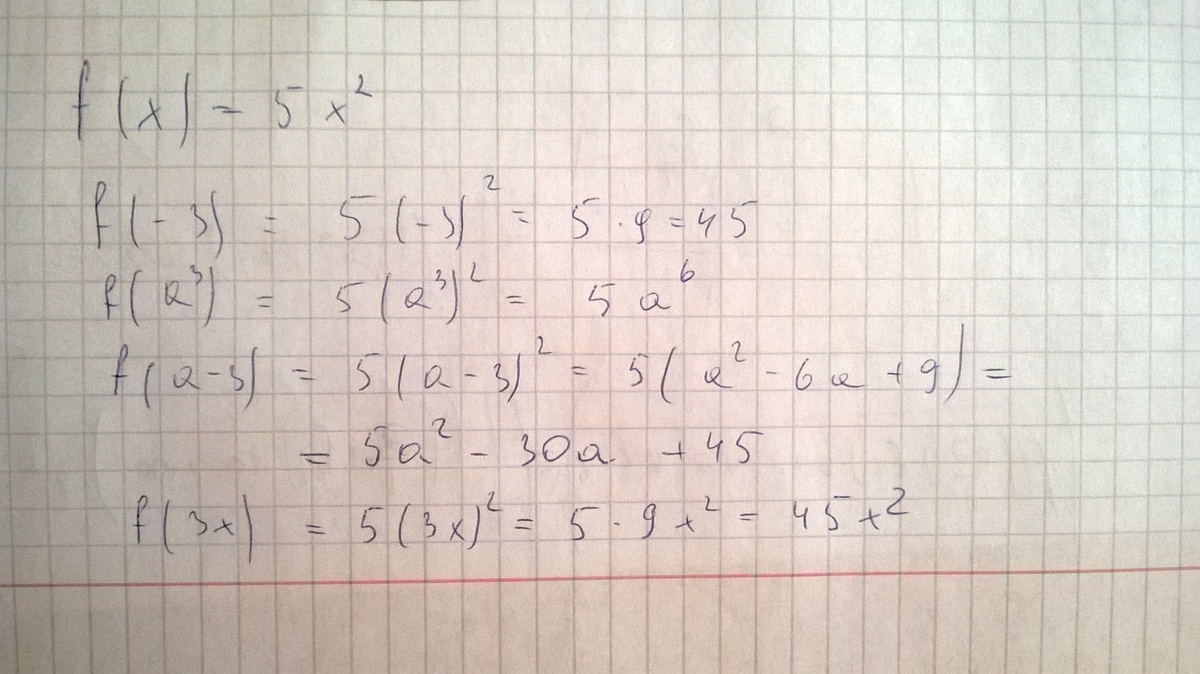 f(x) = 5x²
f(-3) = 5(-3)² = 5·9 = 45
f(a³) = 5(a³)² = 5a⁶
f(a-3) = 5(a-3)² = 5(a² - 6a + 9) =
= 5a² - 30a + 45
f(3x) = 5(3x)² = 5·9x² = 45x²